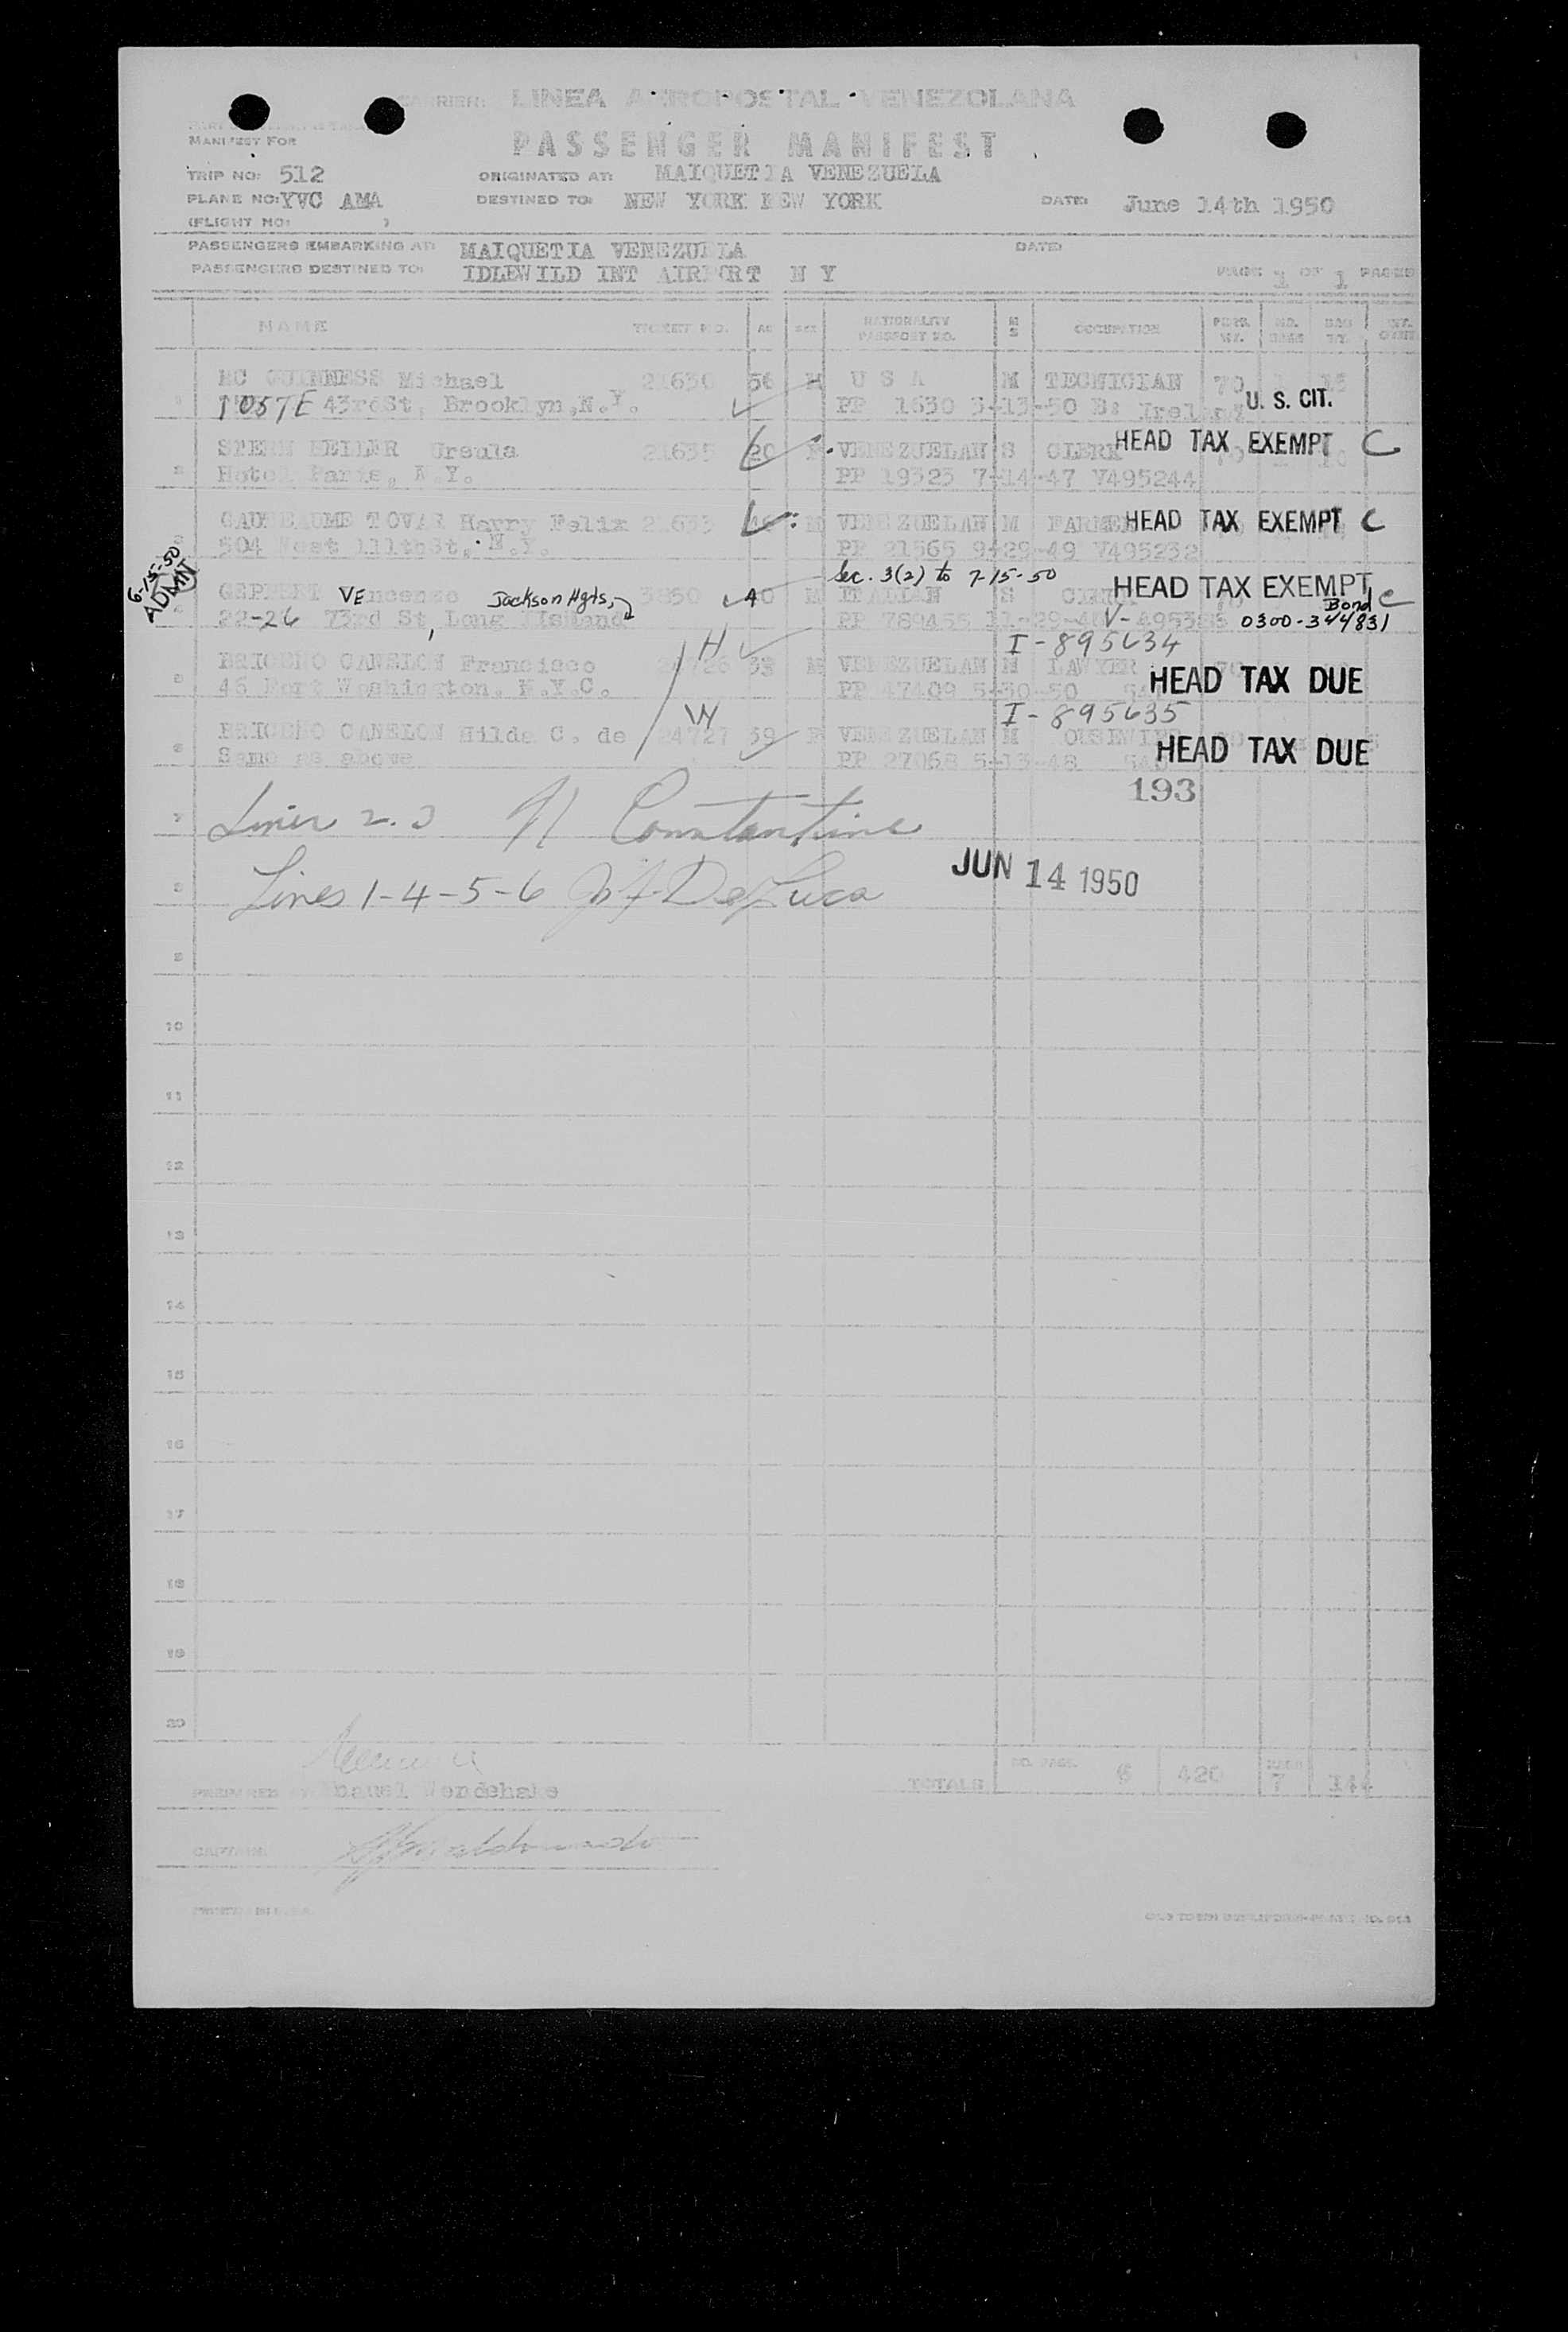 CARRIER: LINEA AEROPOSTAL VENEZOLANA
MANIFEST FOR
PASSENGER MANIFEST
TRIP NO: 512 ORIGINATED AT: MAIQUETIA VENEZUELA
PLANE NO: YVC AMA DESTINED TO: NEW YORK NEW YORK DATE: June 14th 1950
(FLIGHT NO: )
PASSENGERS EMBARKING AT: MAIQUETIA VENEZUELA DATE:
PASSENGERS DESTINED TO: IDLEWILD INT AIRPORT N Y PAGE 1 OF 1 PAGES
NAME TICKET NO. AGE SEX NATIONALITY PASSPORT NO. M S OCCUPATION PERS. WT. NO. BAGS BAG WT.
MC GUINNESS Michael 21630 56 M U S A M TECNICIAN 70
1 1057 E 43rdSt, Brooklyn,N.Y. PP 1630 3-13-50 B: Ireland U. S. CIT.
STERN HELLER Ursula 21635 20 F VENEZUELAN S CLERK HEAD TAX EXEMPT C
2 Hotel Paris, N.Y. PP 19323 7-14-47 V495244
TOVAR Harry Felix 21633 M VENEZUELAN M FARMER HEAD TAX EXEMPT C
3 504 West 111thSt, N.Y. PP 21565 9-29-49 V495232
6-15-50 ADMN Sec. 3(2) to 7-15-50
VEncenzo Jackson Hgts, 3850 40 M ITALIAN S HEAD TAX EXEMPT, C
4 22-26 73rd St, Long Island PP 789455 11-29-46 V- Bond 0300-344831
I-895634
BRICENO CANELON Francisco 24726 33 M VENEZUELAN M LAWYER
H
5 46 Fort Washington, N.Y.C. PP 47409 5-30-50 HEAD TAX DUE
W I-895635
BRICENO CANELON Hilda C. de 24727 39 F VENEZUELAN M OUSEWIFE
6 Same as above PP 27068 5-13-48 HEAD TAX DUE
193
7 Lines 2.3 N Constantine
8 Lines 1-4-5-6 DeLuca JUN 14 1950
9
10
11
12
13
14
15
16
17
18
19
20
TOTALS NO. PASS. 6 420 7 144
PREPARED BY
CAPTAIN
PRINTED IN U.S.A.